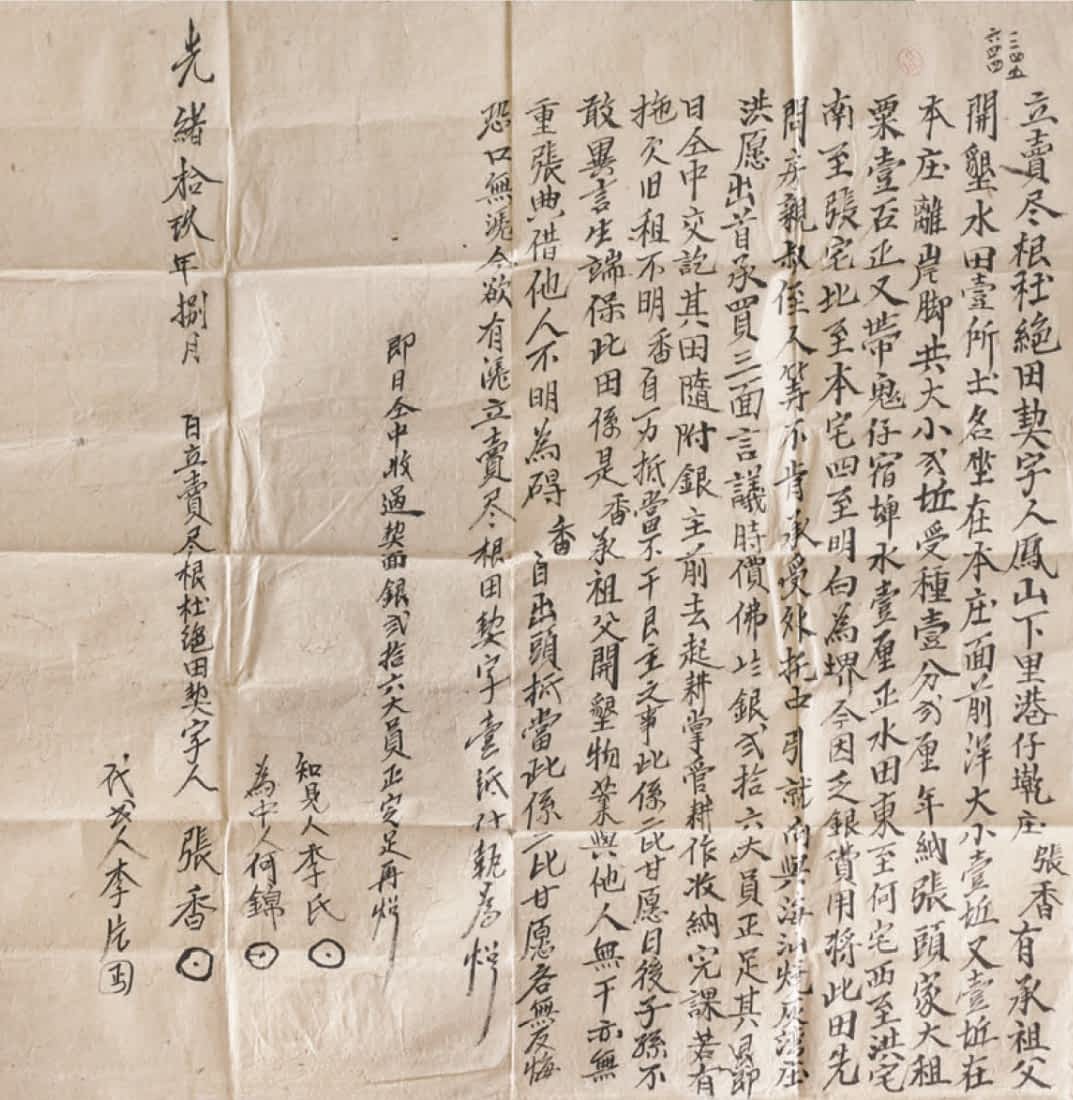 一二四五
六四四
立賣尽根杜絕田契字人鳳山下里港仔墘庄張香有承祖父
開墾水田壹所土名坐在本庄面前洋大小壹坵又壹坵在
本庄離崁脚共大小弍坵受種壹分弍厘年納張頭家大租
粟壹石正又帶鬼仔宿埤水壹厘正水田東至何宅西至洪宅
南至張宅北至本宅四至明白為堺今因乏銀費用將此田先
問房親叔侄人等不肯承受外托中引就向與海汕燒灰許庄
洪愿出首承買三面言議時價佛㕥銀弍拾六大員正足其艮即
日仝中交訖其田隨附銀主前去起耕掌管耕作收納完課若有
拖欠旧租不明香自力抵當不干艮主之事此係二比甘愿日後子孫不
敢異言生端保此田係是香承祖父開墾物業與他人無干亦無
重張典借他人不明為碍香自出頭抵當此係二比甘愿各無反悔
恐口無慿今欲有慿立賣尽根田契字壹紙付執為炤
即日仝中收過契面銀弍拾六大員正完足再炤
知見人李氏
為中人何錦
光緒拾玖年捌月 日立賣尽根杜絕田契字人 張香
代書人李